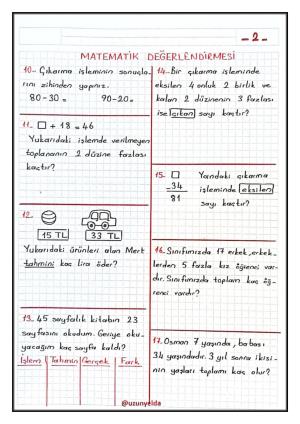 - 2 -
MATEMATİK DEĞERLENDİRMESİ
10- Çıkarma işleminin sonuçla-
rını zihinden yapınız.
80-30= 90-20=
11- □ + 18 = 46
Yukarıdaki işlemde verilmeyen
toplananın 2 düzine fazlası
kaçtır?
12.
15 TL 33 TL
Yukarıdaki ürünleri alan Mert
tahmini kaç lira öder?
13. 45 sayfalık kitabın 23
sayfasını okudum. Geriye oku-
yacağım kaç sayfa kaldı?
İşlem Tahmin Gerçek Fark
14- Bir çıkarma işleminde
eksilen 4 onluk 2 birlik ve
kalan 2 düzinenin 3 fazlası
ise çıkan sayı kaçtır?
15. □ Yandaki çıkarma
-34 işleminde eksilen
81 sayı kaçtır?
16. Sınıfımızda 17 erkek, erkek-
lerden 5 fazla kız öğrenci var-
dır. Sınıfımızda toplam kaç öğ-
renci vardır?
17. Osman 7 yaşında, babası
34 yaşındadır. 3 yıl sonra ikisi-
nin yaşları toplamı kaç olur?
@uzunyelda